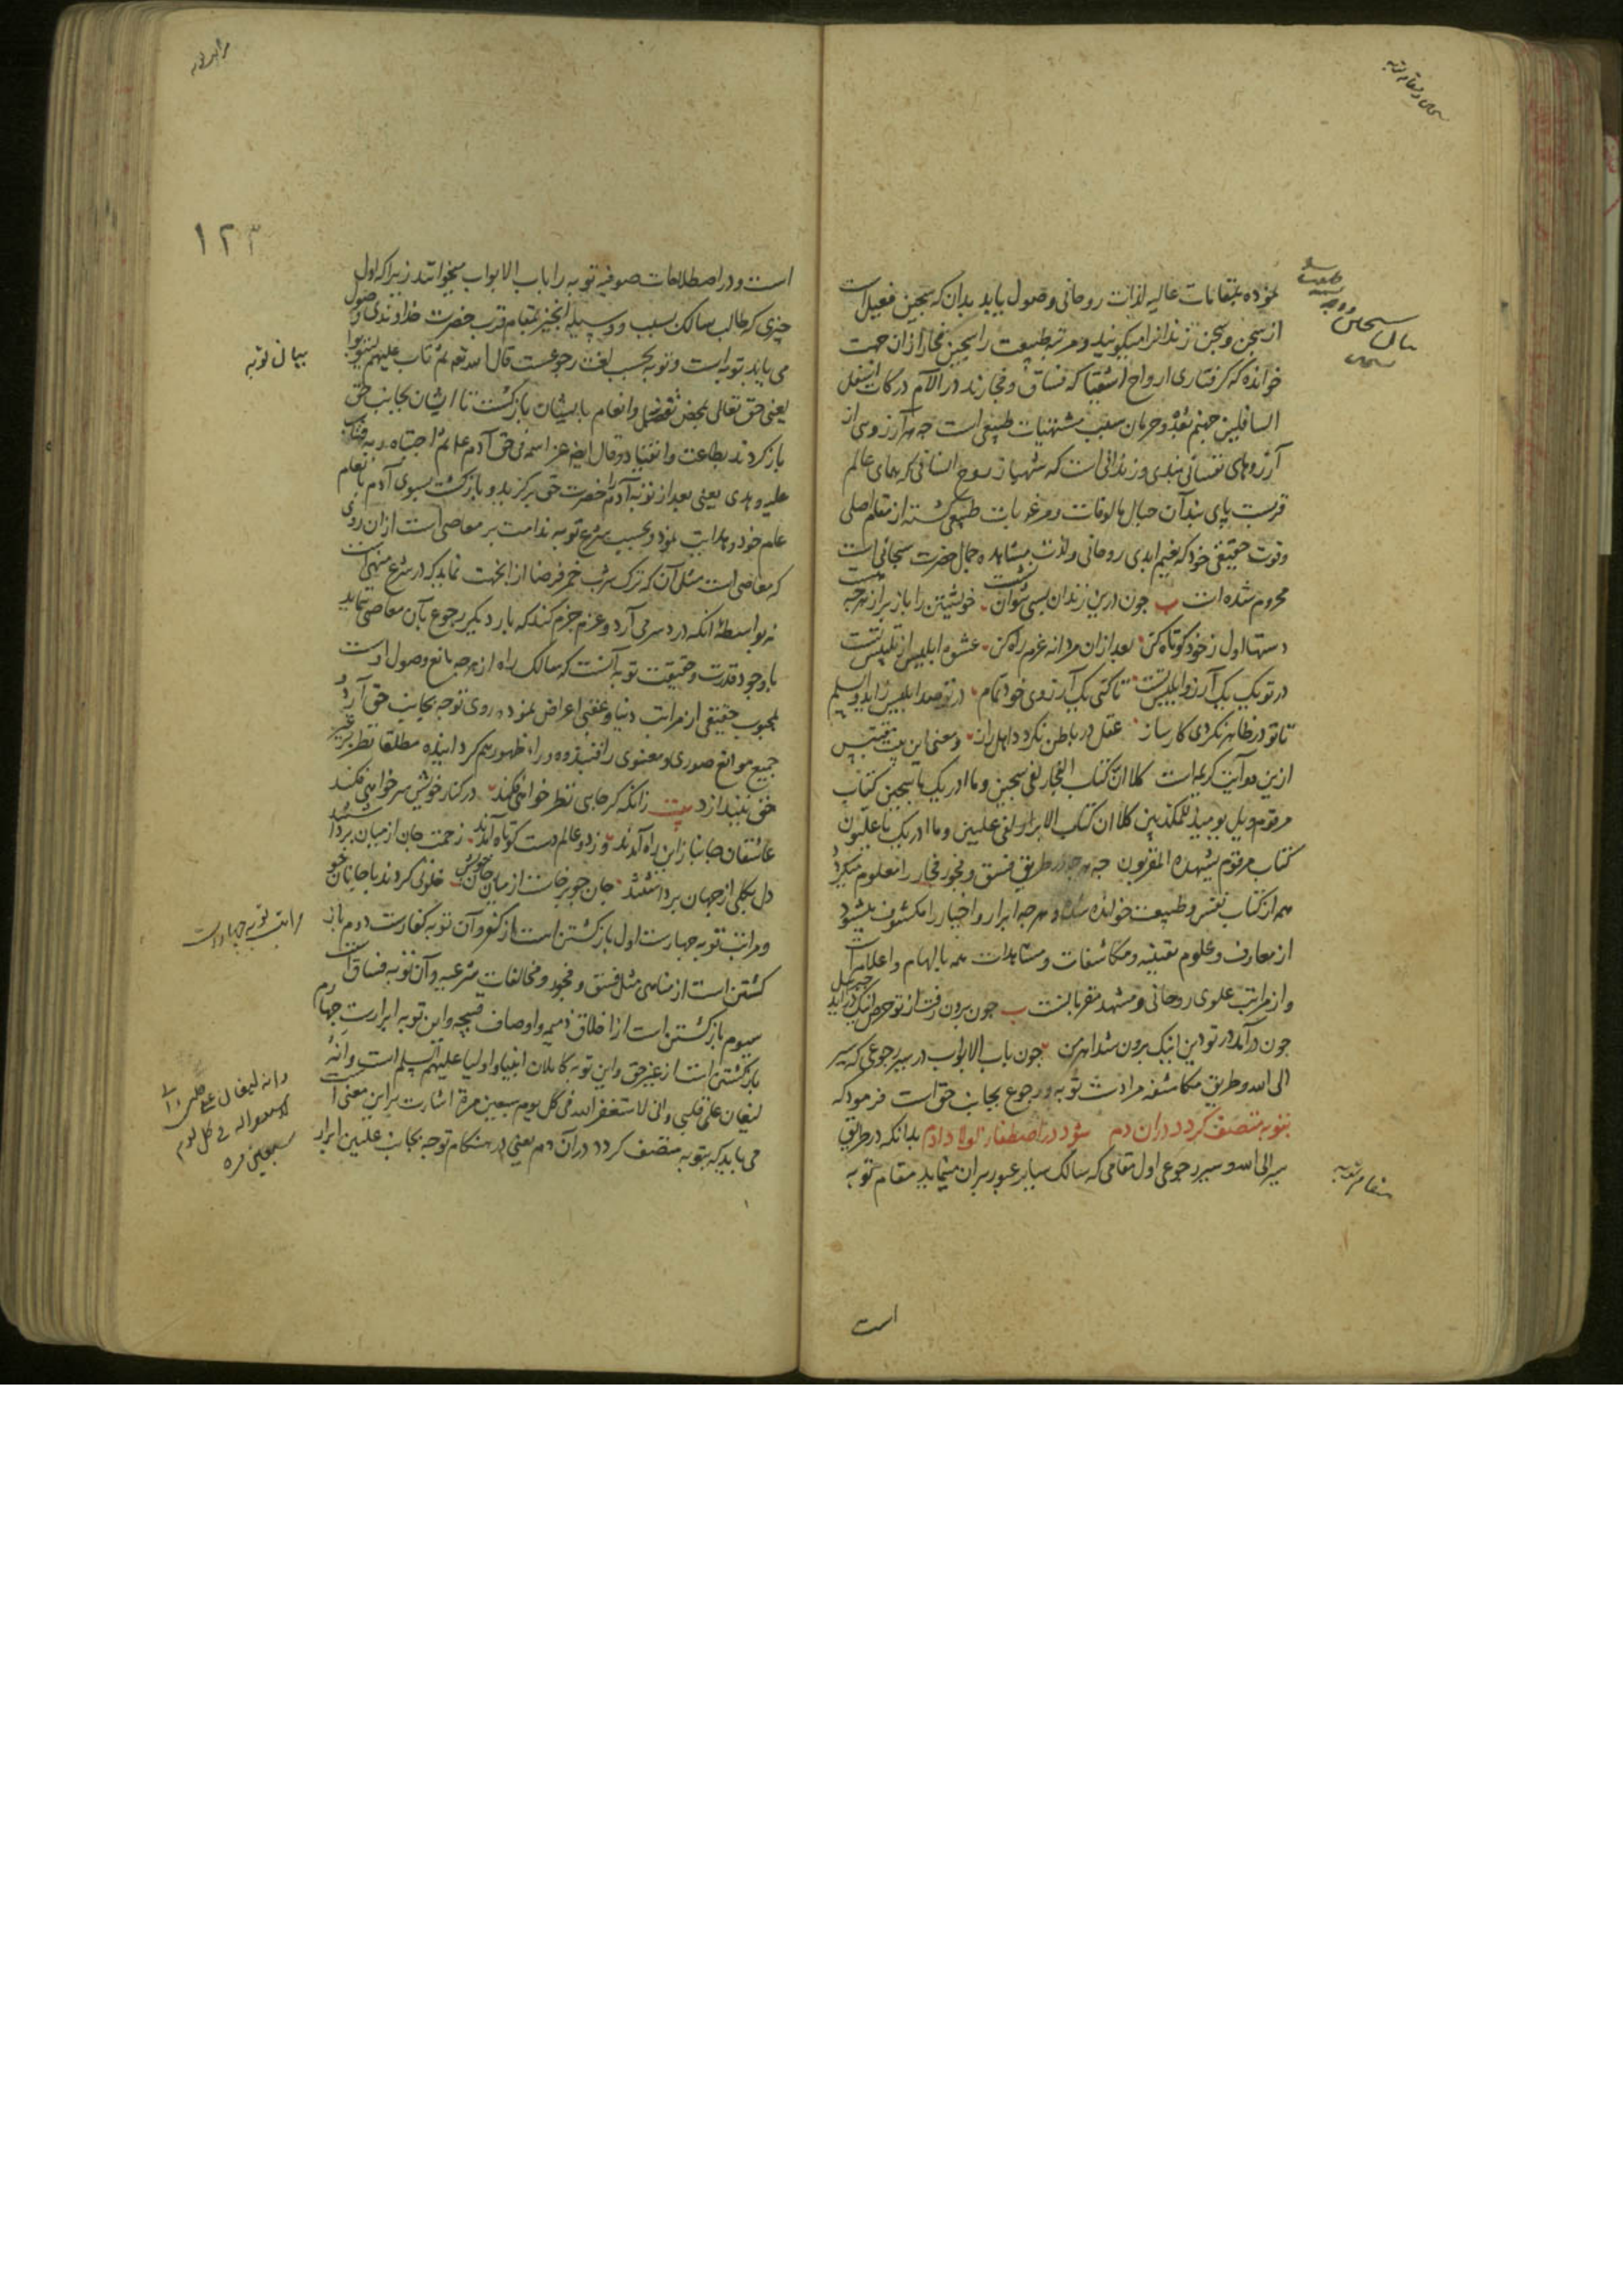 نموده بمقامات عالیه لذات روحانی وصول یابد بدان که سجین فعیل است
از سجن و سجن زندانرا میکویند و مرتبه طبیعت را سجین فجار ازان جهت
خوانده که کرفتاری ارواح اشقیا که فساق و فجارند در آلام درکات اسفل
السافلین جهنم بعد و حرمان بسبب مشتهیات طبیعی است چه هر آرزوئی از
آرزوهای نفسانی بندی و زندانی است که شهباز روح انسانی که همای عالم
قربست پای بند آن حبال مالوفات و مرغوبات طبیعی کشته از مقام اصلی
وقوت حقیقی خود که نعیم ابدی روحانی ولذت مشاهده جمال حضرت سبحانی است
محروم شده است ب چون درین زندان بسی نتوان نشست خویشتن را باز بر از هرچه هست
دستها اول ز خود کوتاه کن بعد ازان مردانه عزم راه کن عشوه ابلیس از تلبیس تست
در تو یک یک آرزو ابلیس تست تا کنی یک آرزوی خود تمام در تو صد ابلیس زاید والسلم
تا تو در ظاهر نکردی کارساز عقل در باطن نکردد اهل راز و معنی این بیت مقتبس
ازین دو آیت کریمه است کلا ان کتاب الفجار لفی سجین وما ادریک ما سجین کتاب
مرقوم ویل یومئذ للمکذبین کلا ان کتاب الابرار لفی علیین وما ادریک ما علیون
کتاب مرقوم یشهده المقربون چه هرچه در طریق فسق و فجور فجار را معلوم میکردد
هم از کتاب نفس و طبیعت خوانده شده و هرچه ابرار و اخیار را مکشوف میشود
از معارف و علوم یقینیه و مکاشفات و مشاهدات همه بالهام و اعلام است
و از مراتب علوی روحانی و مشهد مقربانست ب چون برون رفت از تو حرص آنکه درآید جبرئیل
چون درآمد در تو دین اینک برون شد اهرمن چون باب الابواب در سیر رجوعی که سیر
الی الله و طریق مکاشفه مرادست توبه و رجوع بجانب حق است فرمود که
بتوبه متصف کردد دران دم شود در اصطفا ز اولاد آدم بدانکه در طریق
سیر الی الله و سیر رجوعی اول مقامی که سالک سایر عبور بران مینماید مقام توبه
مقام توبه
است
۱۲۳
است و در اصطلاحات صوفیه توبه را باب الابواب میخوانند زیرا که اول
چیزی که طالب سالک بسبب و وسیله آنچیز بمقام قرب حضرت خداوندی وصول
می یابد توبه است و توبه بحسب لغت رجوعست قال الله تعه ثم تاب علیهم لیتوبوا
یعنی حق تعالی بمحض تفضل و انعام با ایشان بازکشت تا ایشان بجانب حق
باز کردند بطاعت و انقیاد و قال ایضا عز اسمه فی حق آدم علم ثم اجتباه ربه فتاب
علیه وهدی یعنی بعد از توبه آدم را حضرت حق برکزید و بازکشت بسوی آدم بانعام
علم خود و هدایت نمود و بحسب شرع توبه ندامت بر معاصی است ازان روی
که معاصی است مثل آن که ترک شرب خمر فرضا از انجهت نماید که در شرع منهی است
نه بواسطه انکه دردسر می آرد و عزم جزم کند که بار دیکر رجوع بآن معاصی ننماید
باوجود قدرت و حقیقت توبه آنست که سالک راه از هرچه مانع وصول اوست
بمحبوب حقیقی از مراتب دنیا و عقبی اعراض نموده روی توجه بجانب حق آرد و
جمیع موانع صوری و معنوی را فنبذوه وراء ظهورهم کردانیده مطلقا نظر بر غیر
حق نیندازد بیت زانکه کر جایی نظر خواهی فکند در کنار خویش سر خواهی فکند
عاشقان جانباز این راه آمدند وز دو عالم دست کوتاه آمدند زحمت جان از میان برداشتند
دل بکلی از جهان برداشتند جان چو برخاست از میان جان خویش خلوتی کردند با جانان خویش
و مراتب توبه چهارست اول بازکشتن است از کفر و آن توبه کفارست دوم باز
کشتن است از مناهی مثل فسق و فجور و مخالفات شرعیه و آن توبه فساق است
سیوم بازکشتن است از اخلاق ذمیمه و اوصاف قبیحه و این توبه ابرارست چهارم
بازکشتن است از غیر حق و این توبه کاملان انبیا و اولیا علیهم السلم است و انه
لیغان علی قلبی وانی لاستغفر الله فی کل یوم سبعین مرة اشارت بر این معنی است
می باید که بتوبه متصف کردد دران دم یعنی در هنکام توجه بجانب علیین ابرار
بیان توبه
مراتب توبه چهار است
وانه لیغان علی قلبی وانی
لاستغفر الله فی کل یوم
سبعین مره